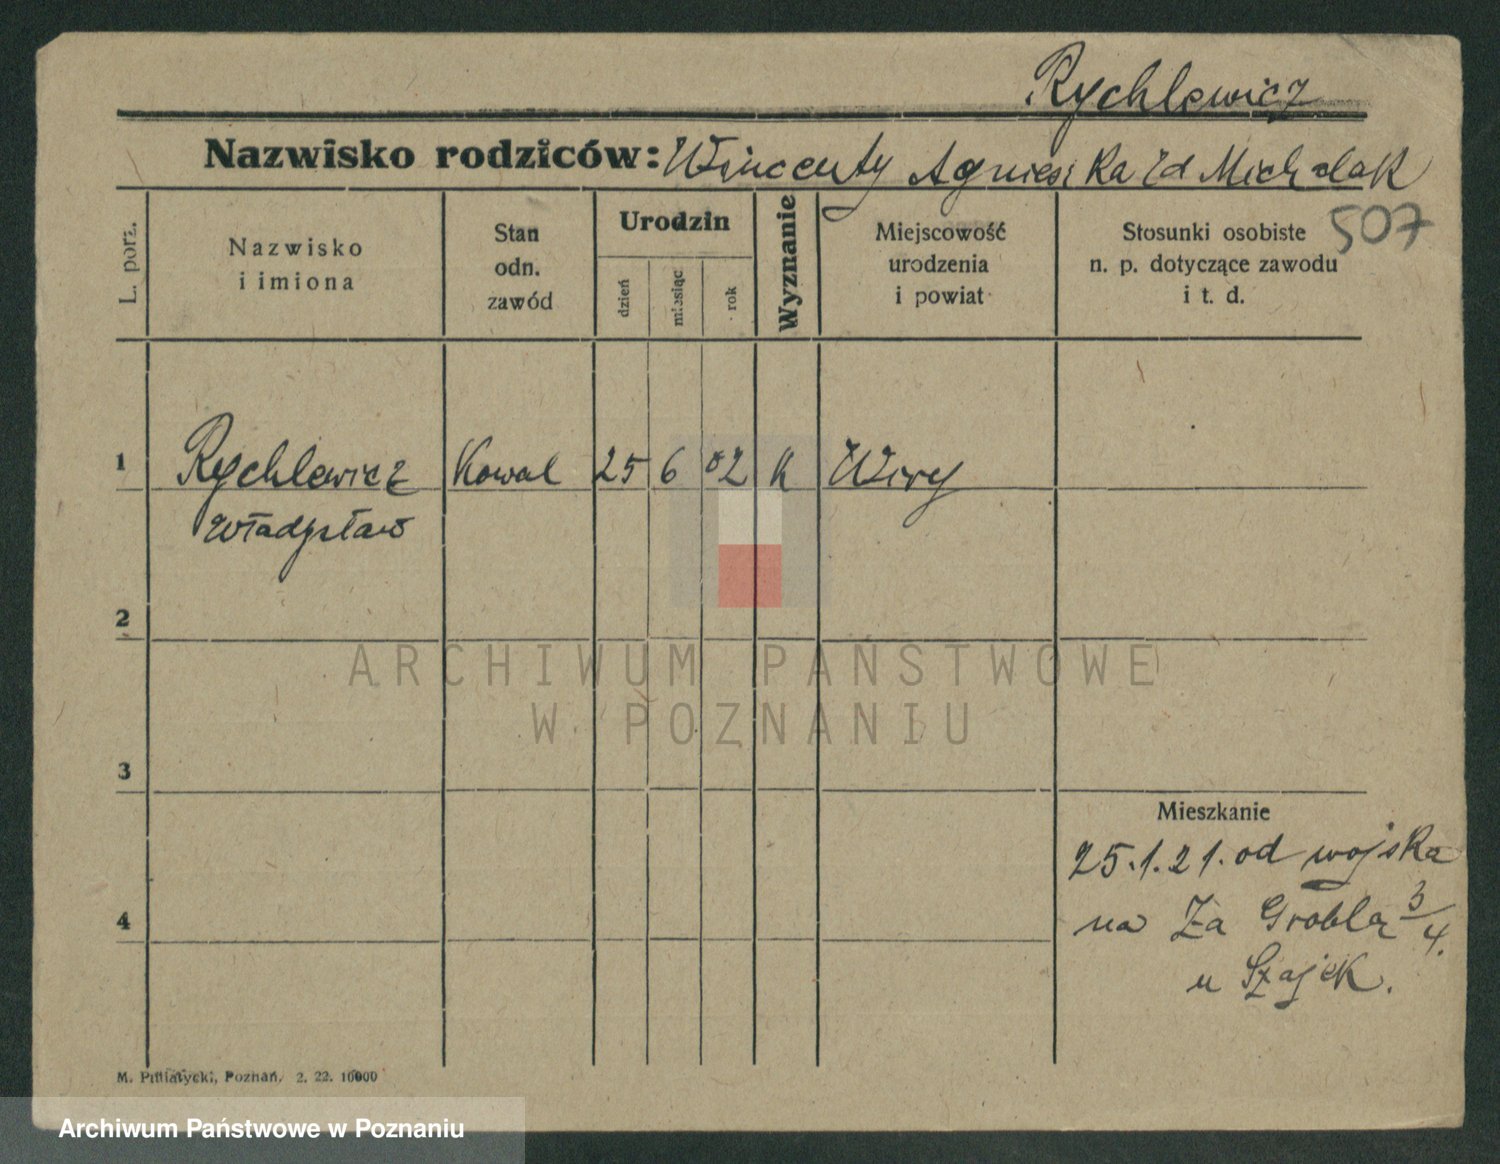 Rychlewicz
Nazwisko rodziców: Wincenty Agnieszka zd Michalak
507
L. porz.
Nazwisko
i imiona
Stan
odn.
zawód
Urodzin
dzień
miesiąc
rok
Wyznanie
Miejscowość
urodzenia
i powiat
Stosunki osobiste
n. p. dotyczące zawodu
i t. d.
1 Rychlewicz Kowal 25 6 02 K Wiry
Władysław
2
3
4
Mieszkanie
25.1.21. od wojska
na Za Groblą 3/4.
u Szajek.
M. Pilialycki, Poznań. 2. 22. 10000
ARCHIWUM PAŃSTWOWE
W POZNANIU
Archiwum Państwowe w Poznaniu